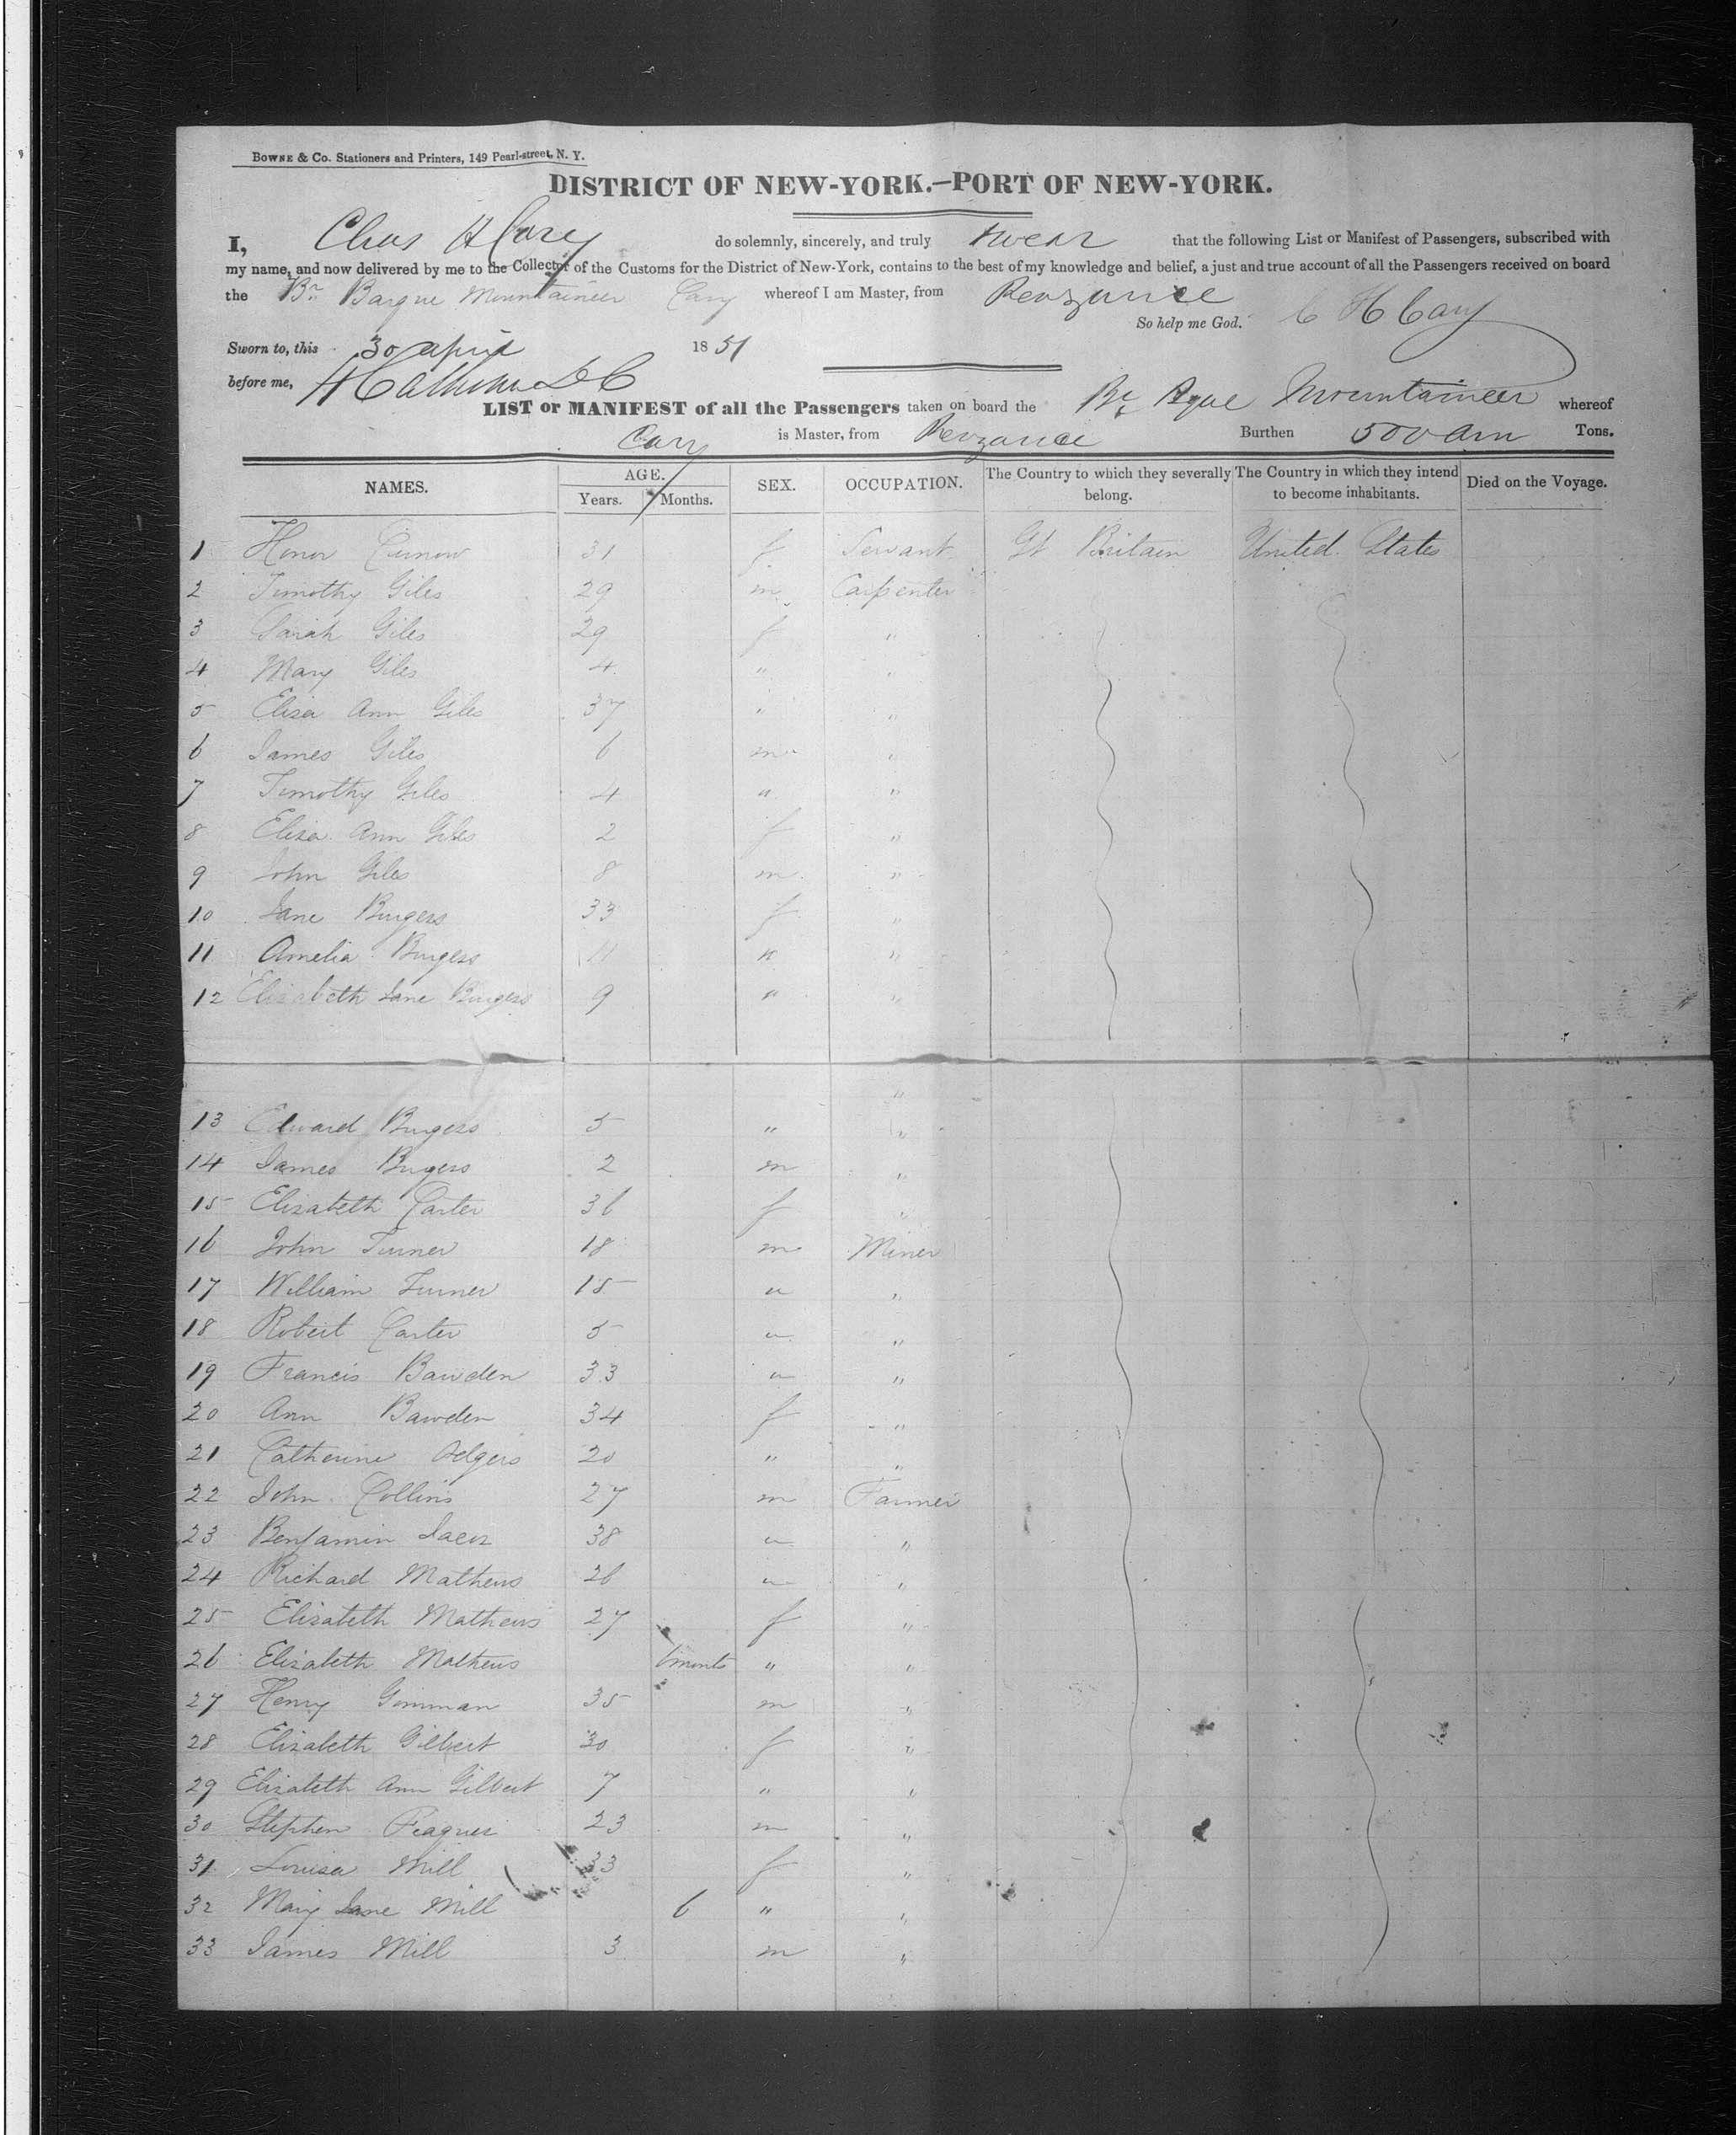 BOWNE & Co. Stationers and Printers, 149 Pearl-street, N. Y.
DISTRICT OF NEW-YORK.—PORT OF NEW-YORK.
I, Chas H Cary do solemnly, sincerely, and truly swear that the following List or Manifest of Passengers, subscribed with
my name, and now delivered by me to the Collector of the Customs for the District of New-York, contains to the best of my knowledge and belief, a just and true account of all the Passengers received on board
the Br Barque Mountaineer Cary whereof I am Master, from Penzance
So help me God. C H Cary
Sworn to, this 30 April 1851
before me, H DC
LIST or MANIFEST of all the Passengers taken on board the Br Bque Mountaineer whereof
Cary is Master, from Penzance Burthen 500 Tons.
NAMES. AGE. Years. Months. SEX. OCCUPATION. The Country to which they severally belong. The Country in which they intend to become inhabitants. Died on the Voyage.
1 Honor Curnow 31 f Servant Gt Britain United States
2 Timothy Giles 29 m Carpenter
3 Sarah Giles 29 f "
4 Mary Giles 4 " "
5 Eliza Ann Giles 37 " "
6 James Giles 6 m "
7 Timothy Giles 4 " "
8 Eliza Ann Giles 2 f "
9 John Giles 8 m "
10 Jane Burgess 33 f "
11 Amelia Burgess 11 " "
12 Elizabeth Jane Burgess 9 " "
"
13 Edward Burgess 5 " "
14 James Burgess 2 m "
15 Elizabeth Carter 36 f "
16 John Turner 18 m Miner
17 William Turner 15 " "
18 Robert Carter 5 " "
19 Francis Bawden 33 " "
20 Ann Bawden 34 f "
21 Catherine 20 " "
22 John Collins 27 m Farmer
23 Benjamin 38 " "
24 Richard Mathews 26 " "
25 Elizabeth Mathews 27 f "
26 Elizabeth Mathews 6 monts " "
27 Henry 35 m "
28 Elizabeth Gilbert 30 f "
29 Elizabeth Ann Gilbert 7 " "
30 Stephen 23 m "
31 Louisa Mill 33 f "
32 Mary Jane Mill 6 " "
33 James Mill 3 m "